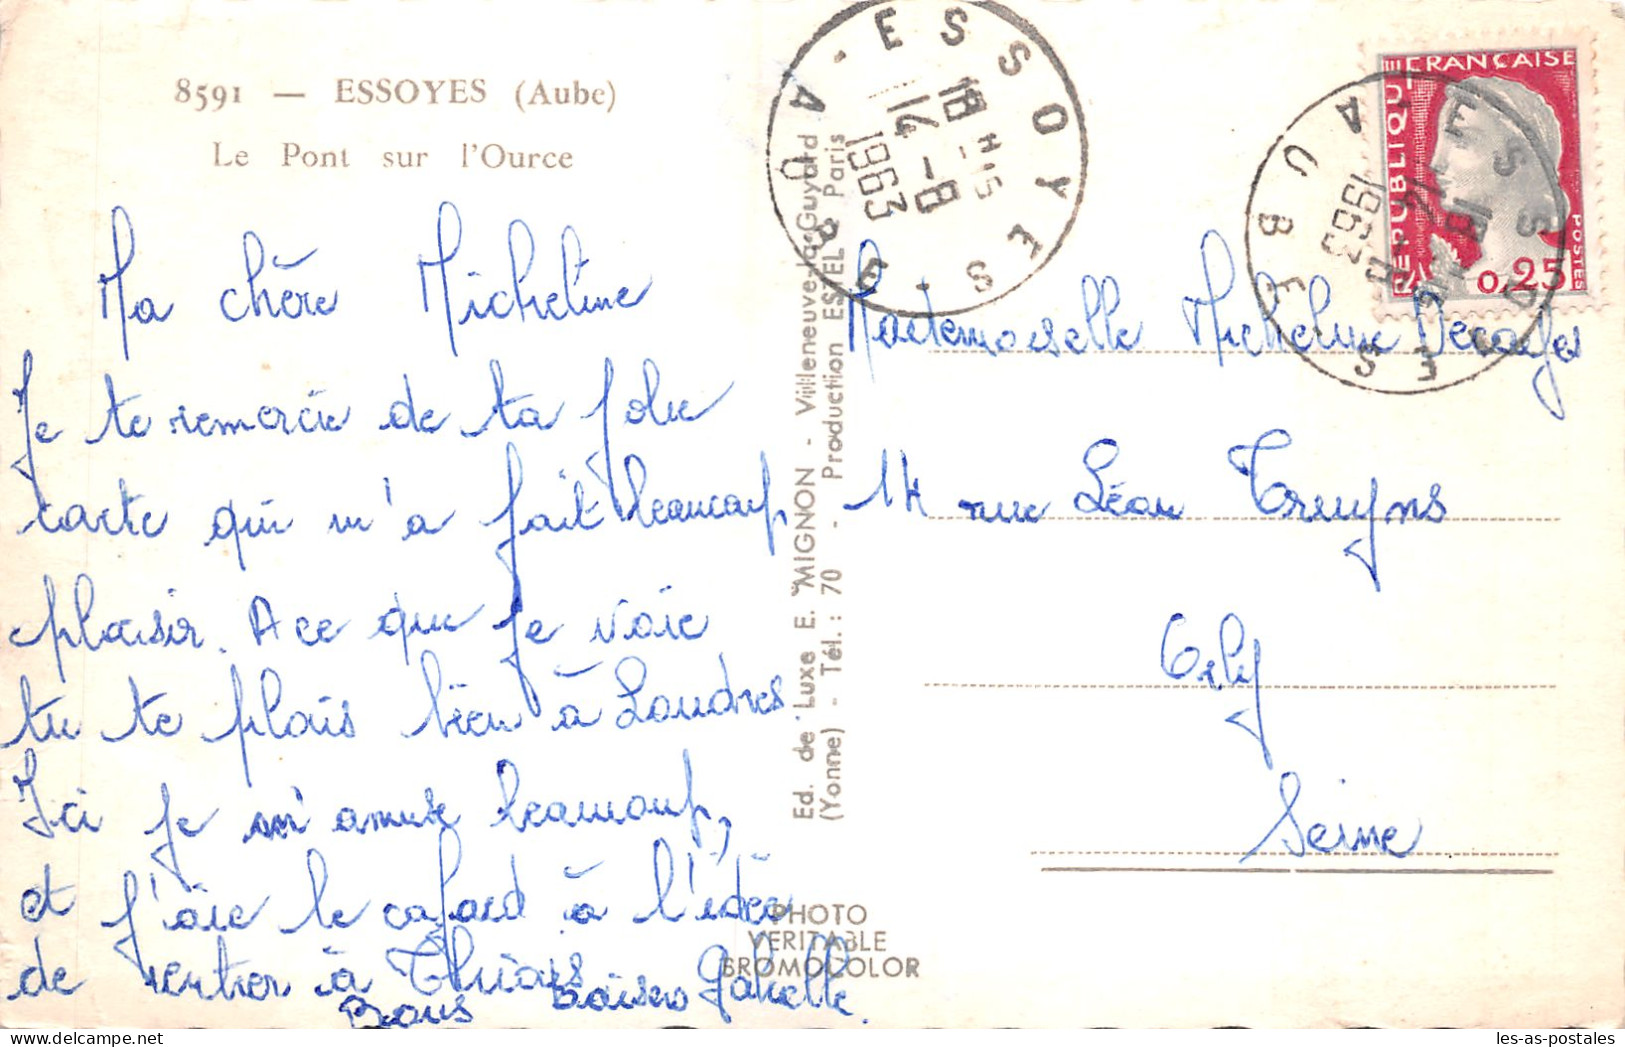 8591 — ESSOYES (Aube)
Le Pont sur l'Ource
Ma chère Micheline
Je te remercie de ta jolie
carte qui m'a fait beaucoup
plaisir. A ce que je voie
tu te plais bien à Londres
Ici je m'amuse beaucoup,
et j'aie le cafard à l'idée
de rentrer à Thiais
Bons baisers Gabelle.
Ed. de Luxe E. MIGNON - Villeneuve-la-Guyard
(Yonne) - Tél. : 70 - Production ESTEL Paris
PHOTO
VERITABLE
BROMOCOLOR
ESSOYES - AUBE -
18 H 15
14 - 8
1963
RÉPUBLIQUE FRANÇAISE
POSTES
0,25
ESSOYES
AUBE
18 H 15
14 - 8
1963
Mademoiselle Micheline
14 rue Léon Cruyns
Orly
Seine
les-as-postales